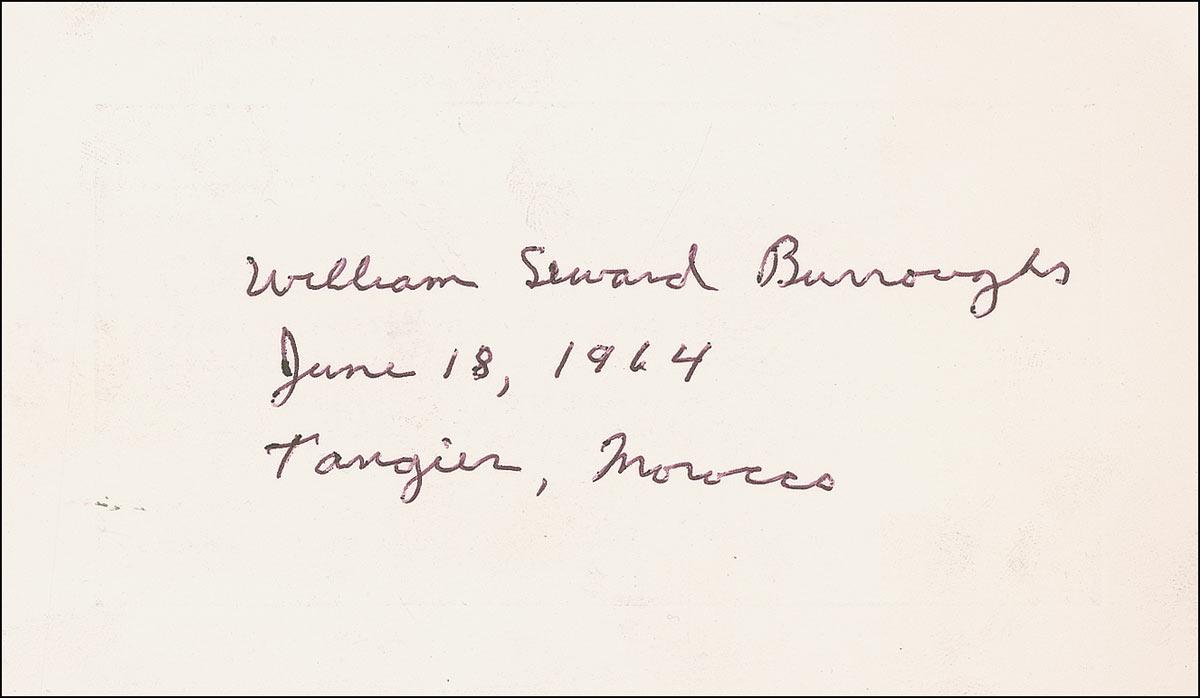 William Seward Burroughs
June 18, 1964
Tangier, Morocco